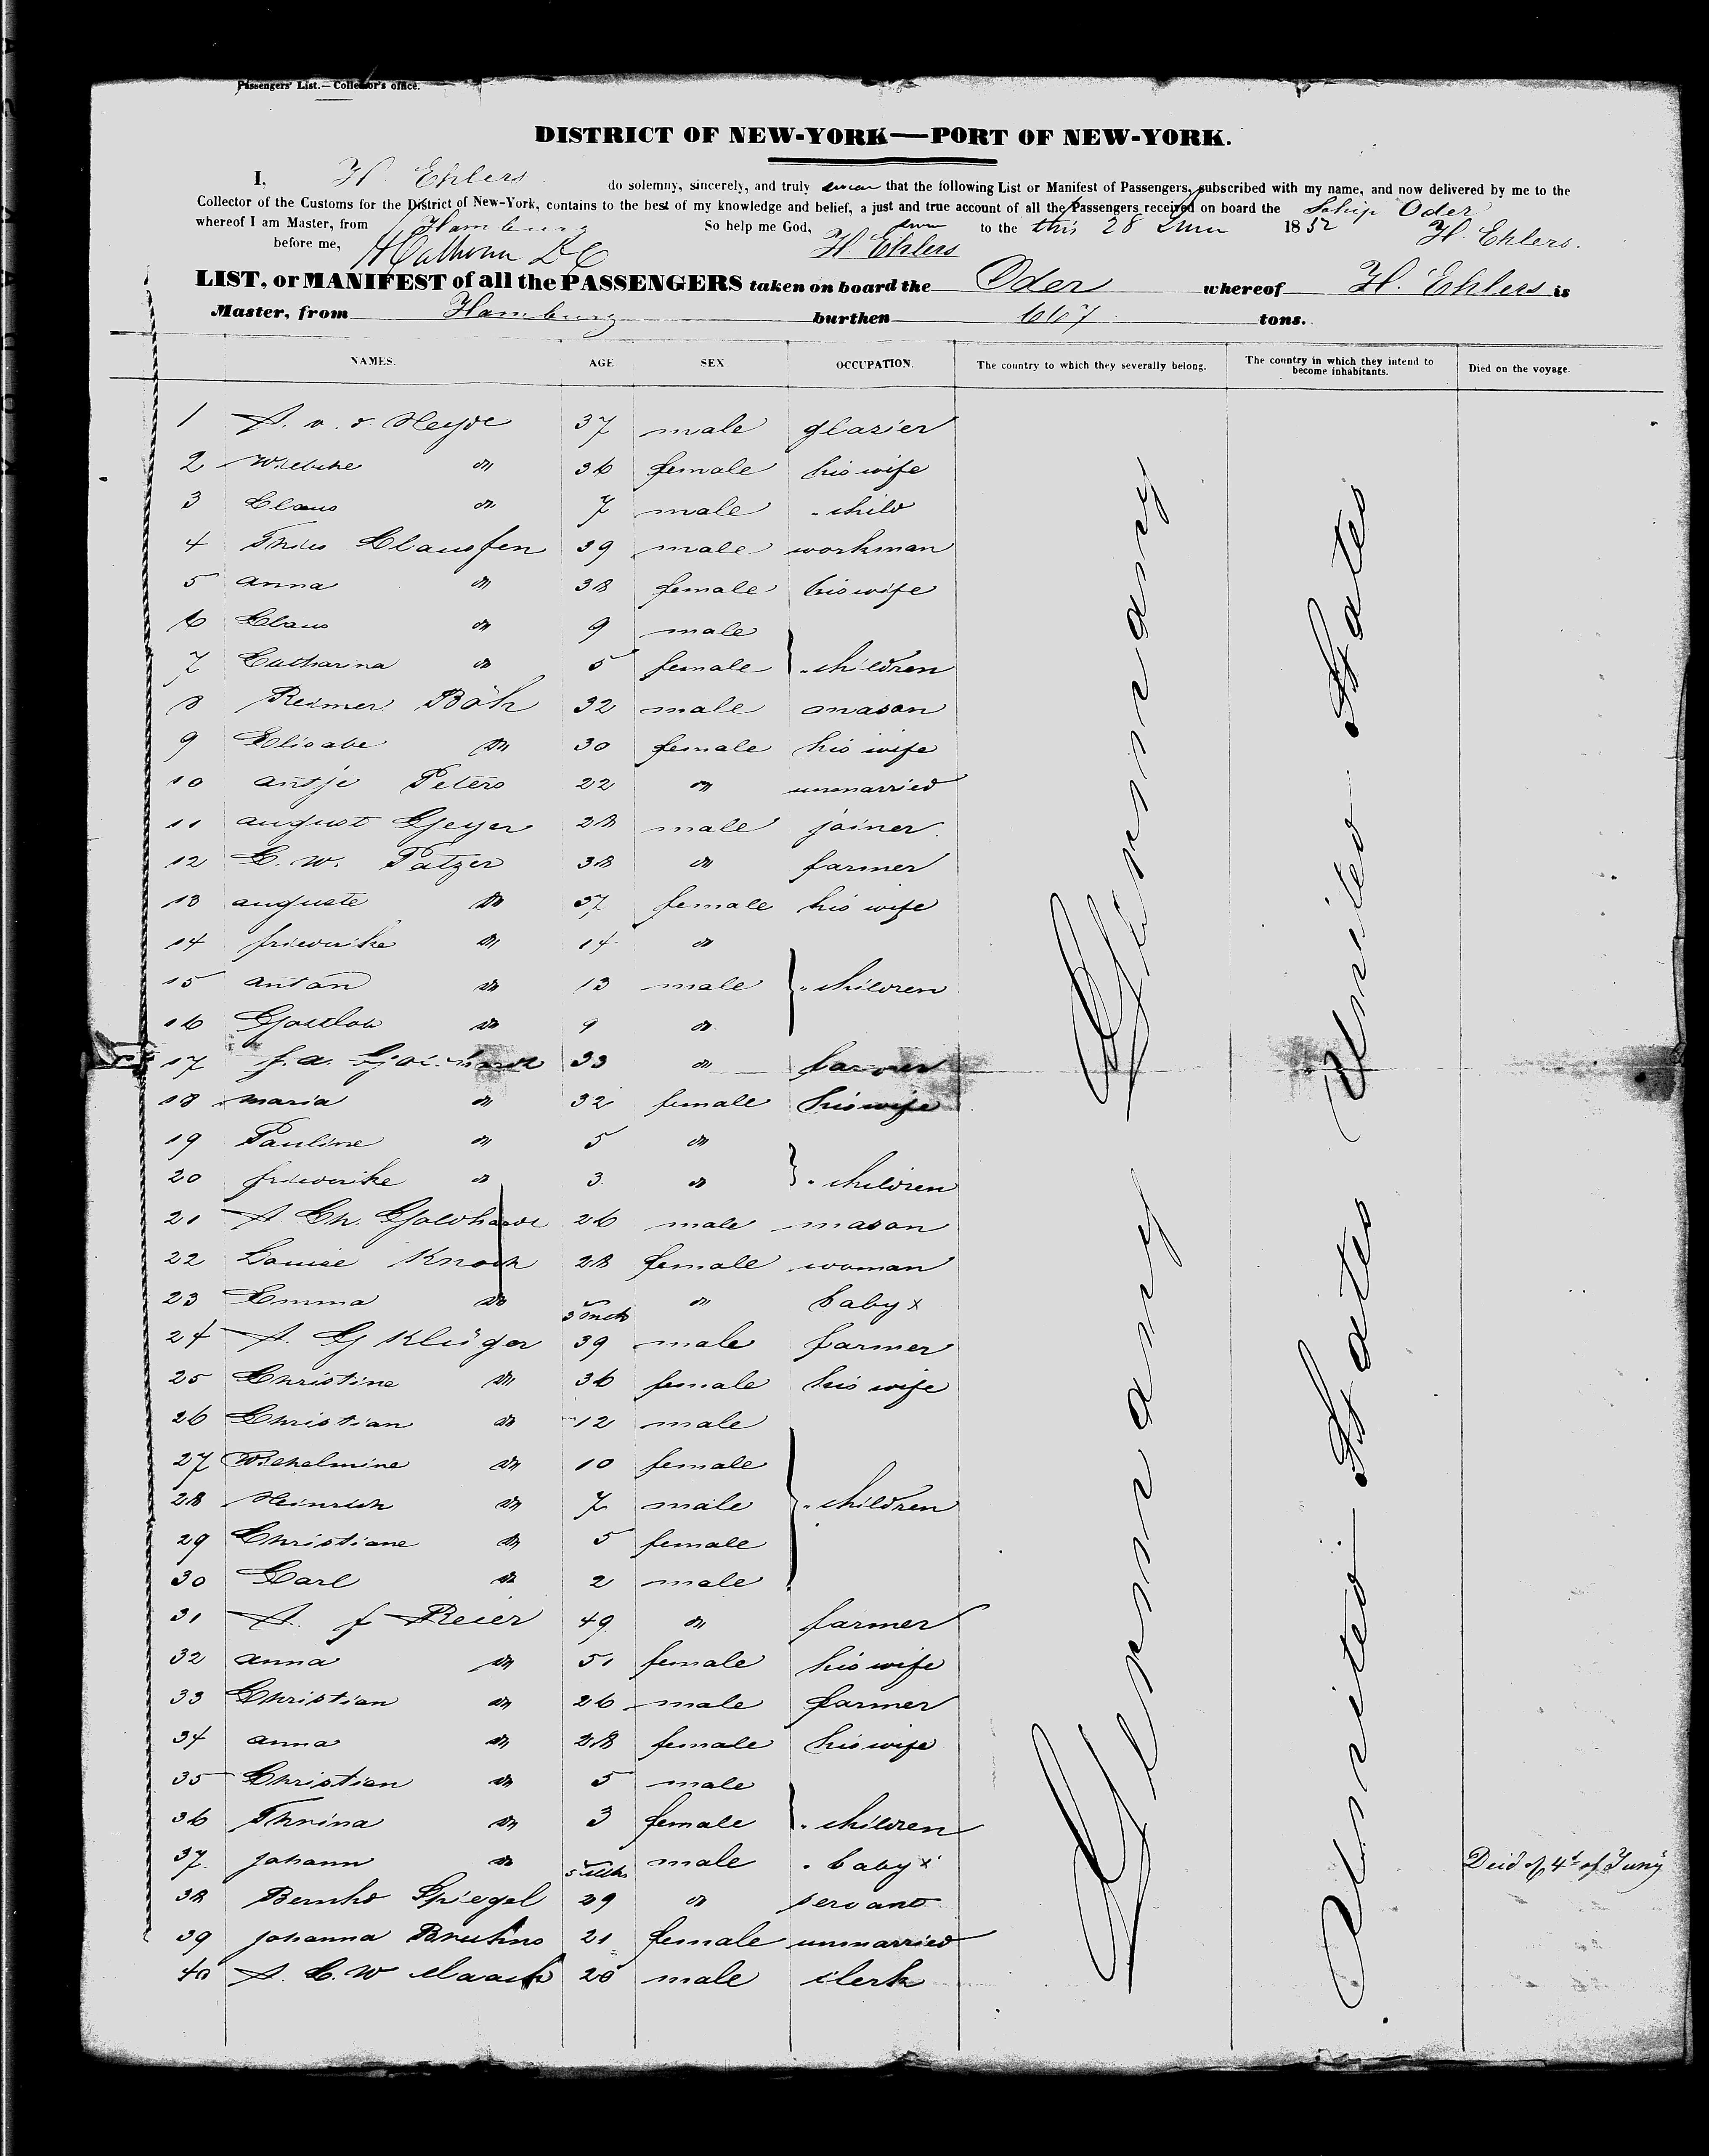 Passengers' List.—Collector's office.
DISTRICT OF NEW-YORK—PORT OF NEW-YORK.
I, H. Ehlers do solemny, sincerely, and truly swear that the following List or Manifest of Passengers, subscribed with my name, and now delivered by me to the
Collector of the Customs for the District of New-York, contains to the best of my knowledge and belief, a just and true account of all the Passengers received on board the Schip Oder
whereof I am Master, from Hamburg So help me God, to the this 28 June 1852 H. Ehlers.
before me, H. Ehlers
LIST, or MANIFEST of all the PASSENGERS taken on board the Oder whereof H. Ehlers is
Master, from Hamburg burthen 667 tons.
NAMES. AGE. SEX. OCCUPATION. The country to which they severally belong. The country in which they intend to become inhabitants. Died on the voyage.
1 A. v. d. Heyde 37 male glazier
2 Wiebke do 36 female his wife
3 Claus do 7 male " child
4 Thies Claussen 39 male workman
5 anna do 38 female his wife
6 Claus do 9 male
7 Catharina do 5 female " children
8 Reimer Böh 32 male mason
9 Elisabe do 30 female his wife
10 antje Peters 22 do unmarried
11 august Geyer 28 male joiner
12 C. W. Patzer 38 do farmer
13 auguste do 37 female his wife
14 friederike do 14 do
15 anton do 13 male " children
16 Gottlob do 9 do
17 f. a. 33 do farmer
18 maria do 32 female his wife
19 Pauline do 5 do
20 friederike do 3 do " children
21 A. Ch. Goldhardt 26 male mason
22 Louise Knoch 28 female woman
23 Emma do 3 mth do baby x
24 A. G Klüger 39 male farmer
25 Christine do 36 female his wife
26 Christian do 12 male
27 Wilhelmine do 10 female
28 Heinrich do 7 male " children
29 Christiane do 5 female
30 Carl do 2 male
31 A. f Reier 49 do farmer
32 anna do 51 female his wife
33 Christian do 26 male farmer
34 anna do 28 female his wife
35 Christian do 5 male
36 Thrina do 3 female " children
37 johann do 5 mth male " baby x Deid of 4t of Juny
38 Bernhd Spiegel 29 do servant
39 johanna Bruhns 21 female unmarried
40 A. C. W Maack 20 male clerk
Germany Germany
United States United States